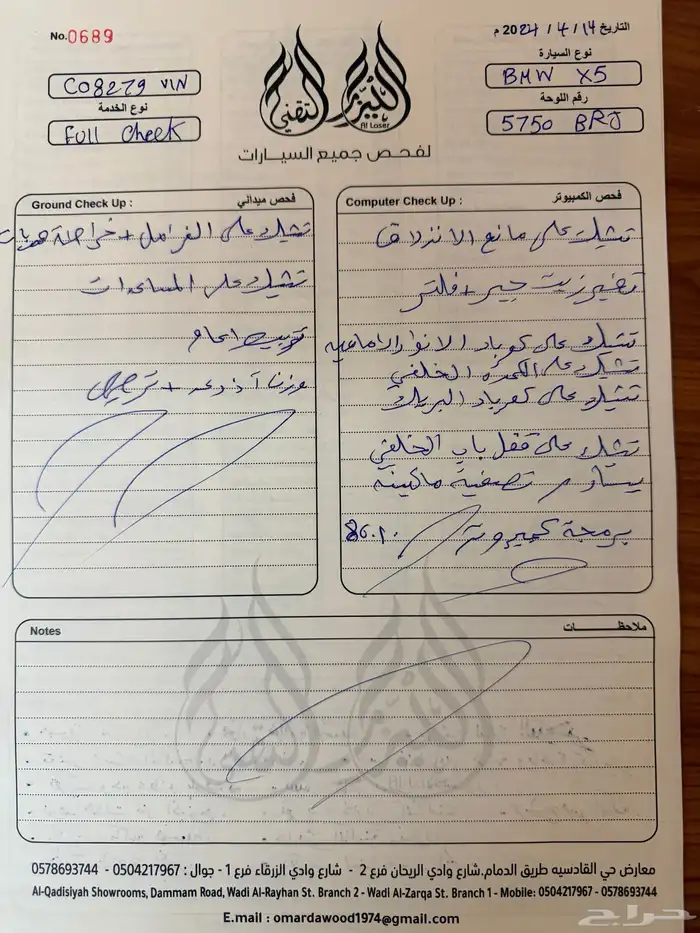 No. 0689
التاريخ 2024 / 4 / 14 م
نوع السيارة
BMW X5
رقم اللوحة
5750 BRJ
C08279 VIN
نوع الخدمة
Full Cheek
الليزر التقني
Al Laser
لفحص جميع السيارات
Computer Check Up : فحص الكمبيوتر
تشيك على مانع الانزلاق
تغير زيت جير + فلتر
تشيك على كمبرد الانوار الامامية
تشيك على الكمرة الخلفي
تشيك على البريك
تشيك على قفل باب الخلفي
يستلزم تصفية ماكينه
برمجة كمبيوتر
Ground Check Up : فحص ميداني
تشيك على الفرامل +
تشيك على المساعدات
توبيت
وزن اذرعه + ترصيص
Notes ملاحظات
معارض حي القادسيه طريق الدمام.شارع وادي الريحان فرع 2 - شارع وادي الزرقاء فرع 1 - جوال : 0504217967 - 0578693744
Al-Qadisiyah Showrooms, Dammam Road, Wadi Al-Rayhan St. Branch 2 - Wadi Al-Zarqa St. Branch 1 - Mobile: 0504217967 - 0578693744
E.mail : omardawood1974@gmail.com
حراج